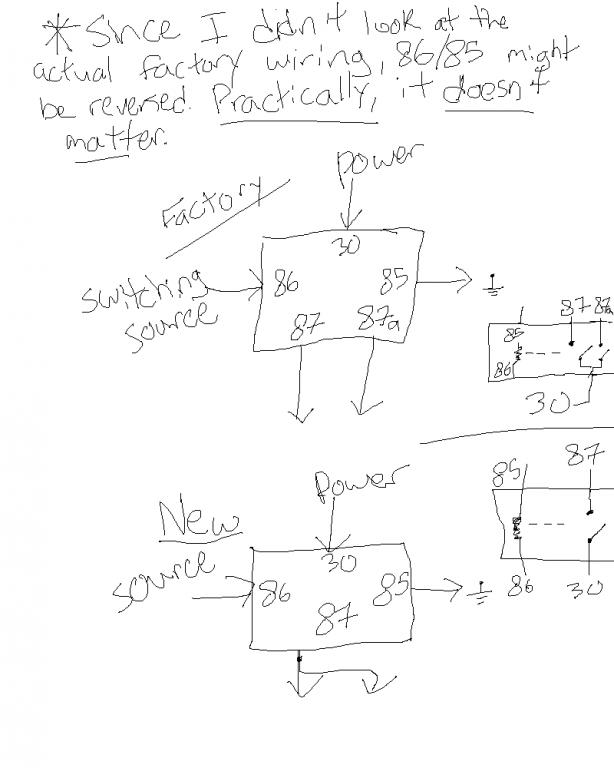 * Since I didn't look at the
actual factory wiring, 86/85 might
be reversed. Practically, it doesn't
matter.
Factory
power
30
switching
source
86
85
87
87a
87 87a
85
86
30
New
Power
source
30
86
85
87
85
87
86
30